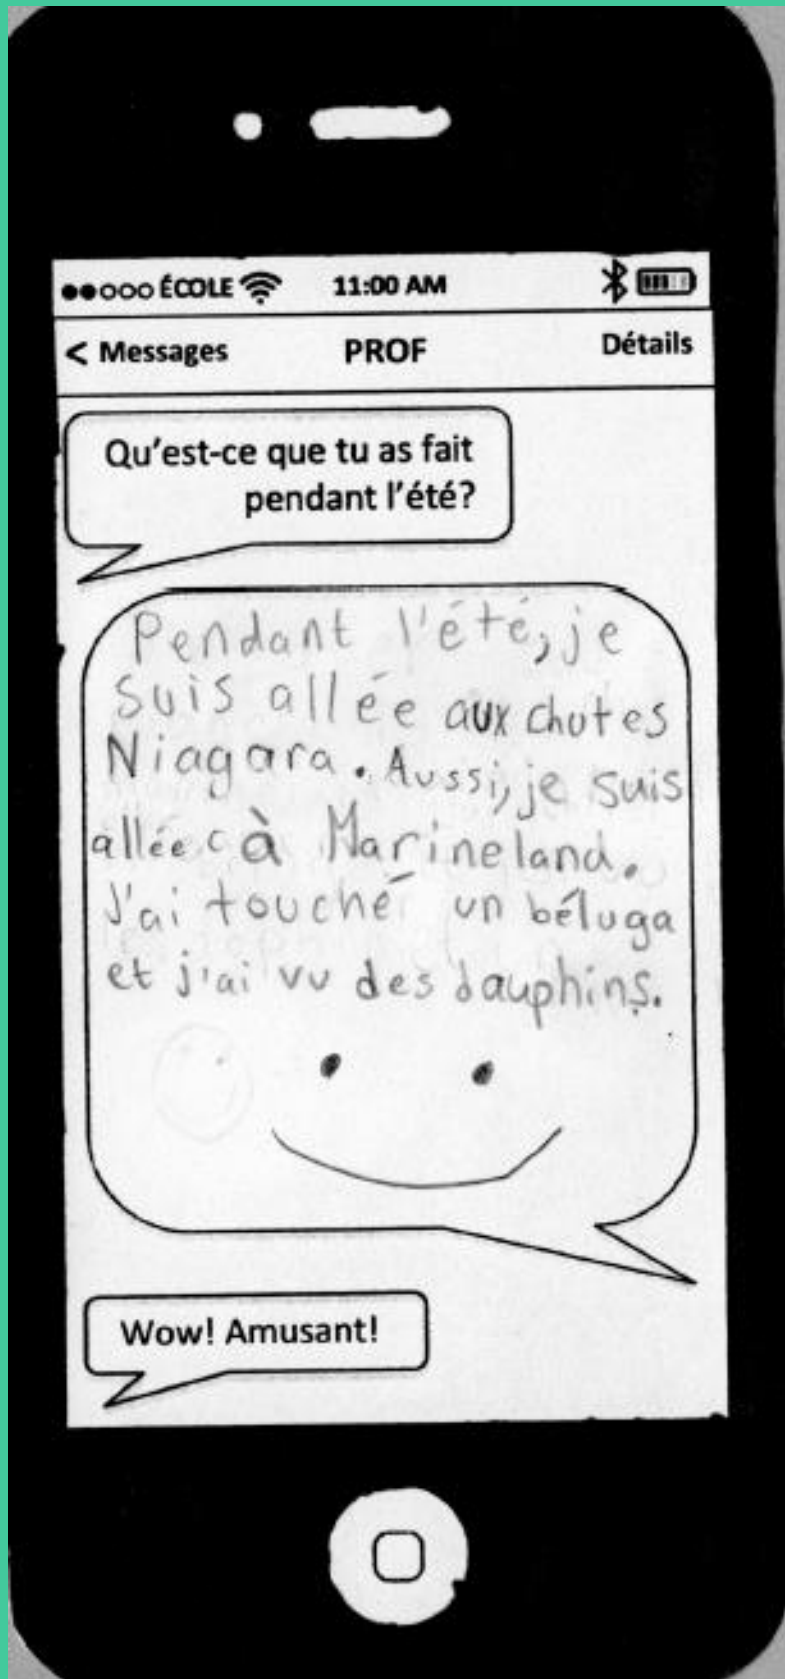 ÉCOLE 11:00 AM
< Messages PROF Détails
Qu'est-ce que tu as fait
pendant l'été?
Pendant l'été, je
suis allée aux chutes
Niagara. Aussi, je suis
allée à Marineland.
J'ai touché un béluga
et j'ai vu des dauphins.
Wow! Amusant!